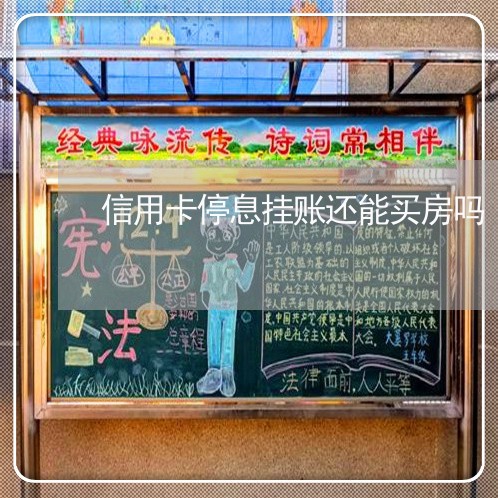 经典咏流传 诗词常相伴
信用卡停息挂账还能买房吗
宪法
12.4
公平 公正
总章程
中华人民共和国
是工人阶级领导的,以
工农联盟为基础的
人民民主专政的社会主义
国家,社会主义制度是中
华人民共和国的根本制
度,中国共产党领导是中
国特色社会主义最本
质的特征,禁止任何
组织或者个人破坏社会
主义制度,中华人民共和
国的一切权利属于人民,
人民行使国家权力的机
关是全国人民代表大会
和地方各级人民代表
大会。
五年级
法律面前,人人平等